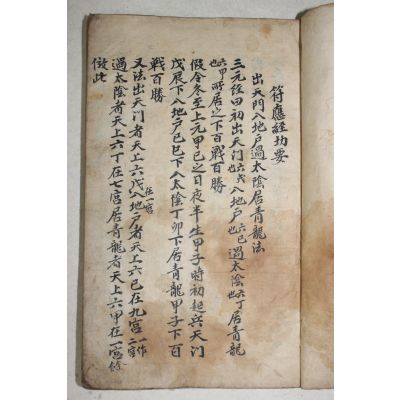 符應経切要
出天門入地戶過太陰居青龍法
三元経曰初出天門六戊也入地戶六己也過太陰六丁也居青龍
六甲也所居之下百戰百勝
假令冬至上元甲己之日夜半生甲子時初起兵天門
戊辰下入地戶己巳下入太陰丁卯下居青龍甲子下百
戰百勝
又法出天门者天上六戊在一宮入地戶者天上六己在九宮一作二宮
過太陰者天上六丁在七宮居青龍者天上六甲在一宮餘
倣此